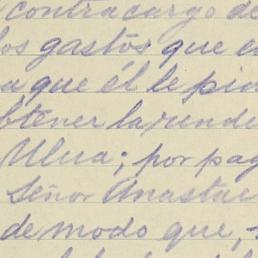 contra cargo de
los gastos que e
a que él le pi
btener la
Ulua; por pag
Señor Anasta
de modo que,